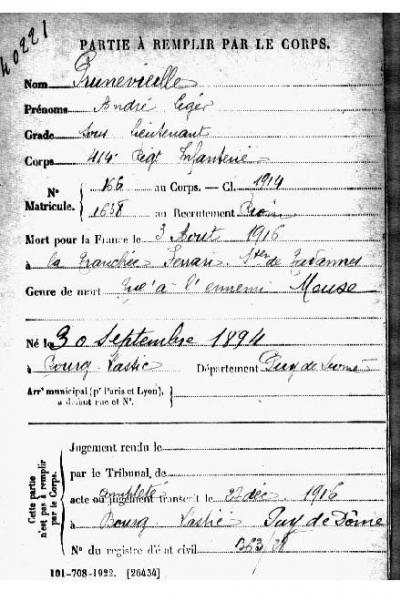 40221
PARTIE À REMPLIR PAR LE CORPS.
Nom Prunevieille
Prénoms André Léger
Grade Sous Lieutenant
Corps 414e Rgt Infanterie
N° Matricule. 166 au Corps. — Cl. 1914
1638 au Recrutement Riom
Mort pour la France le 3 Août 1916
à la tranchée Ferrari Ster de Tavannes
Genre de mort Tué à l'ennemi Meuse
Né le 30 Septembre 1894
à Bourg Lastic Département Puy de Dôme
Arrt municipal (pr Paris et Lyon), à défaut rue et N°.
Cette partie n'est pas à remplir par le Corps.
Jugement rendu le
par le Tribunal de
complété
acte ou jugement transcrit le 23 déc. 1916
à Bourg Lastic Puy de Dôme
N° du registre d'état civil
101-708-1922. [26434]